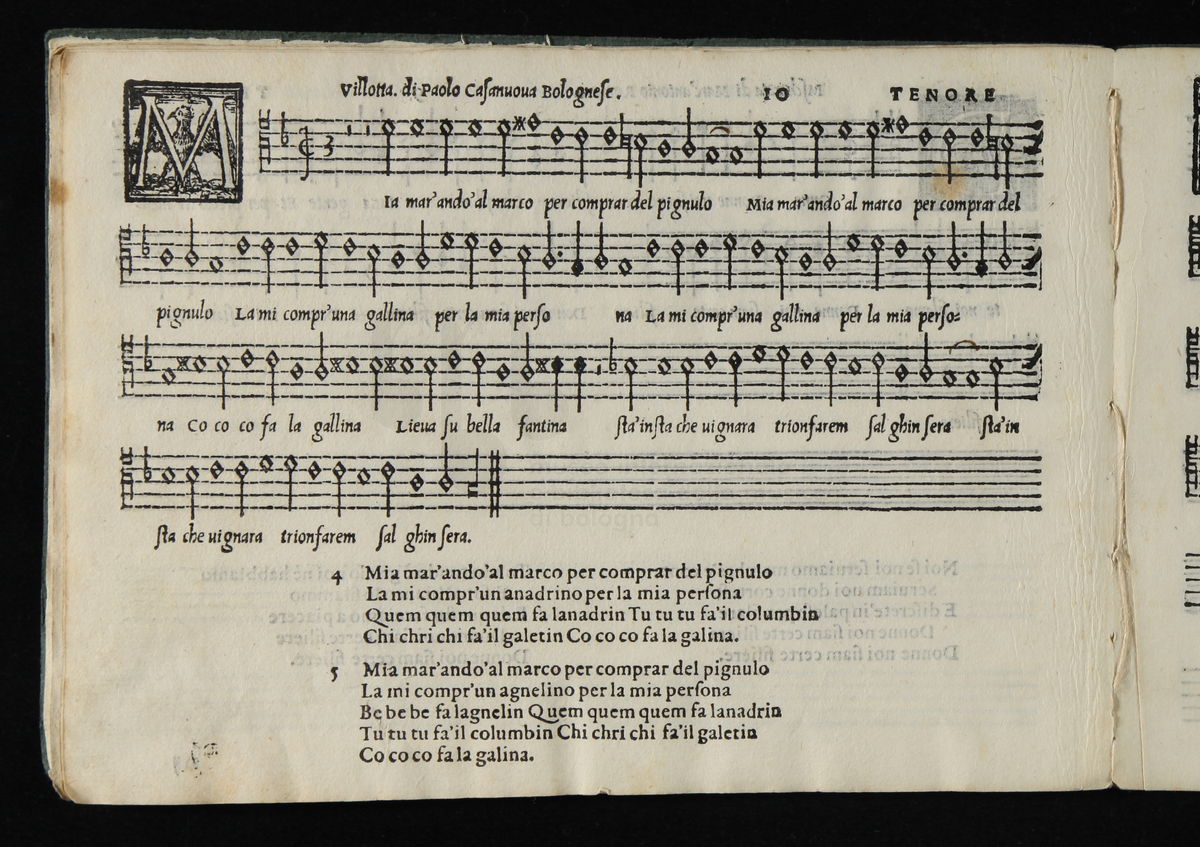 Villotta. di Paolo Casanuoua Bolognese. 10 TENORE
M
Ia mar'ando'al marco per comprar del pignulo Mia mar'ando'al marco per comprar del
pignulo La mi compr'una gallina per la mia perso na La mi compr'una gallina per la mia perso=
na Co co co fa la gallina Lieua su bella fantina sta'insta che uignara trionfarem sal ghin sera sta'in
sta che uignara trionfarem sal ghin sera.
di bologna
4 Mia mar'ando'al marco per comprar del pignulo
La mi compr'un anadrino per la mia persona
Quem quem quem fa lanadrin Tu tu tu fa'il columbin
Chi chri chi fa'il galetin Co co co fa la galina.
5 Mia mar'ando'al marco per comprar del pignulo
La mi compr'un agnelino per la mia persona
Be be be fa lagnelin Quem quem quem fa lanadrin
Tu tu tu fa'il columbin Chi chri chi fa'il galetin
Co co co fa la galina.